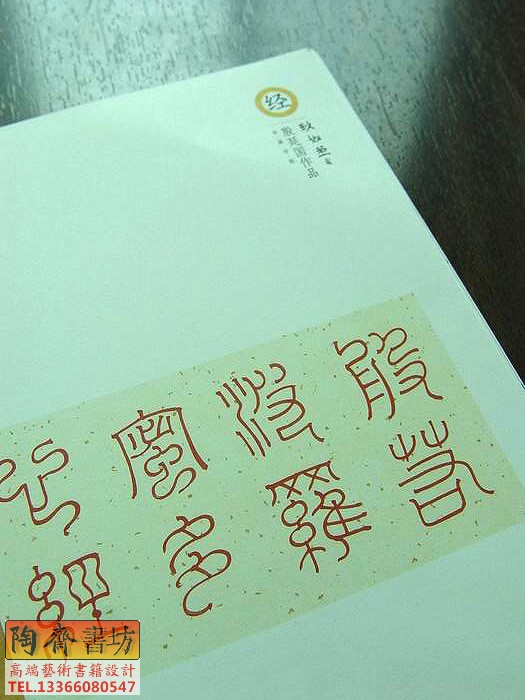 经
殷延国作品
般若
波羅
蜜多
心經
陶齊書坊
高端藝術書籍設計
TEL.13366080547